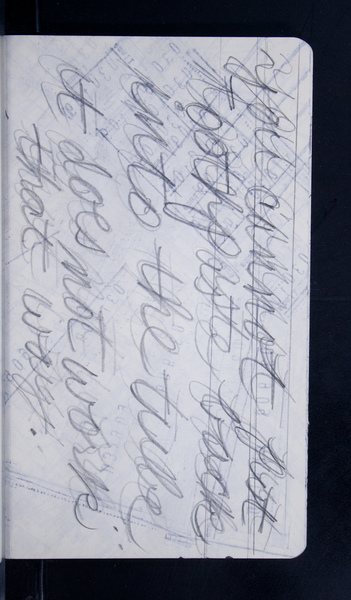 you cannot put
toothpaste back
into the tube
it does not work
that way.